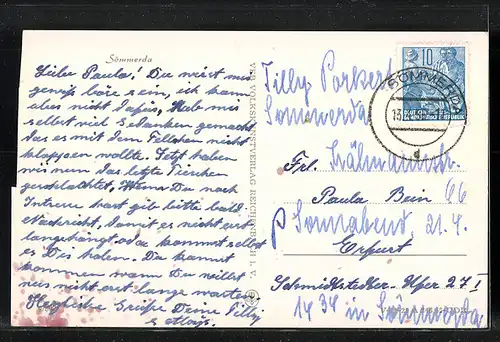 Sömmerda
Liebe Paula! Du wirst mir
gewiß böse sein, ich kann
aber nicht dafür, hab mir
selbst viel Gedanken gemacht
das es mit dem Fellchen nicht
klappen wollte. Jetzt haben
wir nun das letzte
geschlachtet, Wenn Du noch
Intresse hast gib bitte bald
Nachricht, damit es nicht erst
langhängt. oder kommst selbst
es Dir holen. Du kannst
kommen wann Du willst
nur nicht erst lange warten
Herzliche Grüße Deine Tilly
u Alois.
VEB VOLKSKUNSTVERLAG REICHENBACH I. V.
Tilly Porkert
Sömmerda
SÖMMERDA
13
d
10
DEUTSCHE
DEMOKRATISCHE REPUBLIK
Frl.
66
Paula Bein
Sonnabend, 21.4.
Erfurt
Schmidtstedter-Ufer 27 I
14 34 in Sömmerda